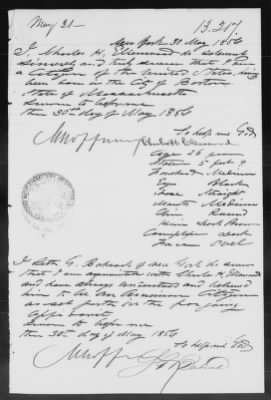 May 31
13.217.
New York 30 May 1856
I Charles H. Ellwood do solemnly
Sincerely and truly declare that I am
a Citizen of the United States, having
been born in the City of Boston
State of Massachusetts
Sworn to before me
this 30th day of May 1856
So help me God
Charles H. Ellwood
Age 26 years
Stature 5 feet 9
Forehead Medium
Eyes Black
Nose Straight
Mouth Medium
Chin Round
Hair Dark Brown
Complexion Dark
Face Oval
I Seth G. do swear
that I am acquainted with Charles H. Ellwood
and have always understood and believed
him to be an American Citizen
as set forth in the foregoing
Affidavit
Sworn to before me
this 30th day of May 1856
So help me God